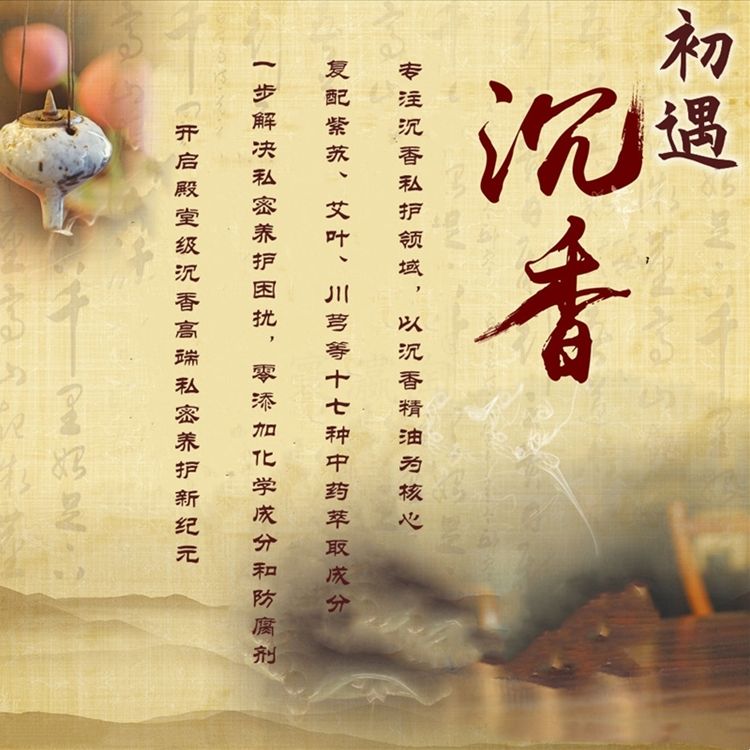 初遇
沉香
专注沉香私护领域，以沉香精油为核心
复配紫苏、艾叶、川芎等十七种中药萃取成分
一步解决私密养护困扰，零添加化学成分和防腐剂
开启殿堂级沉香高端私密养护新纪元